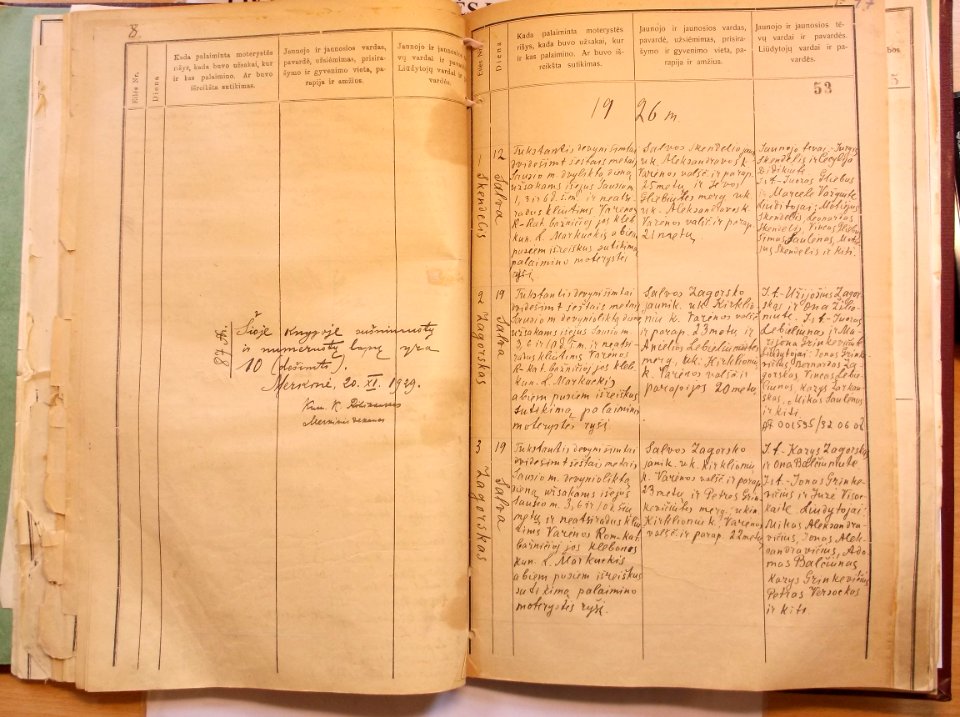 8.
Eilės Nr.
Diena
Kada palaiminta moterystės
rišys, kada buvo užsakai, kur
ir kas palaimino. Ar buvo
išreikšta sutikimas.
Jaunojo ir jaunosios vardas,
pavardė, užsiėmimas, prisira-
šymo ir gyvenimo vieta, pa-
rapija ir amžius.
Jaunojo ir jaunosios
tėvų vardai ir pavardės.
Liūdytojų vardas
vardės.
Šioje knygoje sušniruotų
ir numeruotų lapų yra
10 (dešimts).
Merkinė, 20. XI. 1939.
Kun.
Merkinės dekanas
№ 78
Eilės Nr.
Diena
Kada palaiminta moterystės
rišys, kada buvo užsakai, kur
ir kas palaimino. Ar buvo iš-
reikšta sutikimas.
Jaunojo ir jaunosios vardas,
pavardė, užsiėmimas, prisira-
šymo ir gyvenimo vieta, pa-
rapija ir amžius.
Jaunojo ir jaunosios tė-
vų vardai ir pavardės.
Liūdytojų vardas ir pa-
vardės.
53
19 26 m
1 Skendelis
12 Salva
Tukstantis devyni šimtai
dvidešimt šeštais metais
Sausio m. dvyliktą dieną
užsakams išėjus Sausio m
1, 3 ir 6 d. š.m. ir neatsi-
radus kliutims Varėnos
R-Kat. bažničioj jos kleb.
kun. L. Markuckis abiem
pusiem išreiškus sutikimą
palaimino moterystės
ryšį.
Salvos Skendelio jau.
uk. Aleksandravos k.
Varėnos valsč. ir parap.
25 metų ir Ievos
Glebiutės merg. uk.
uk. Aleksandravos k.
Varėnos valsč. ir parap.
21 metų
Jaunojo tėvai - Jurgis
Skendelis ir Cecylija
Dzikiutė
J. t. - Juozas Glebus
ir Marcelė Važgutė
Liudytojai: Motiejus
Skendelis, Leonardas
Skendelis, Vincas Glebus
Simas Saulėnas, Moti-
jus Skendelis ir kiti.
2 Zagorskas
19 Salva
Tukstantis devyni šimtai
dvidešimt šeštais metais
Sausio m. devynioliktą dieną
užsakams išėjus Sausio m.
3, 6 ir 10 d. š.m. ir neatsi-
radus kliutims Varėnos
R-Kat. bažničioj jos klebonas
kun. L. Markuckis
abiem pusiem išreiškus
sutikimą palaimino
moterystės ryšį.
Salvos Zagorsko
jaunik. uk. Kirklio-
nių k. Varėnos valsč.
ir parap. 23 metų ir
Anelės Lebeliuniutės
merg. uk. Kirklionių
k. Varėnos valsč. ir
parapijos 20 metų
J. t. - Užijošius Zagor-
skas ir Ona Žilio-
niutė. J. t. - Juozas
Lebeliunas ir Ma-
rijona Grinkevičiutė
Liudytojai: Jonas Grinke-
vičius, Bernardas Za-
gorskas, Vincas Lebe-
liunas, Kazys Zarkau-
skas, Mikas Saulėnas
ir kiti.
AA 001595/32 06 02
3 Zagorskas
19 Salva
Tukstantis devyni šimtai
dvidešimt šeštais metais
Sausio m. devynioliktą
dieną užsakams išėjus
Sausio m. 3, 6 ir 10 d. šių
metų ir neatsiradus kliu-
tims Varėnos Rom. Kat.
bažničioj jos klebonas
kun. L. Markuckis
abiem pusiem išreiškus
sutikimą palaimino
moterystės ryšį.
Salvos Zagorsko
jaunik. uk. Kirklionių
k. Varėnos valsč. ir parap.
23 metų ir Petrės Grin-
kevičiutės merg. ukin.
Kirklionių k. Varėnos
valsč. ir parap. 22 metų
J. t. - Kazys Zagorskas
ir Ona Balčiunutė
J. t. - Jonas Grinke-
vičius ir Juzė Visoc-
kaitė Liudytojai:
Mikas Aleksandra-
vičius, Jonas Alek-
sandravičius, Ado-
mas Balčiunas
Kazys Grinkevičius
Petras Versockas
ir kiti.